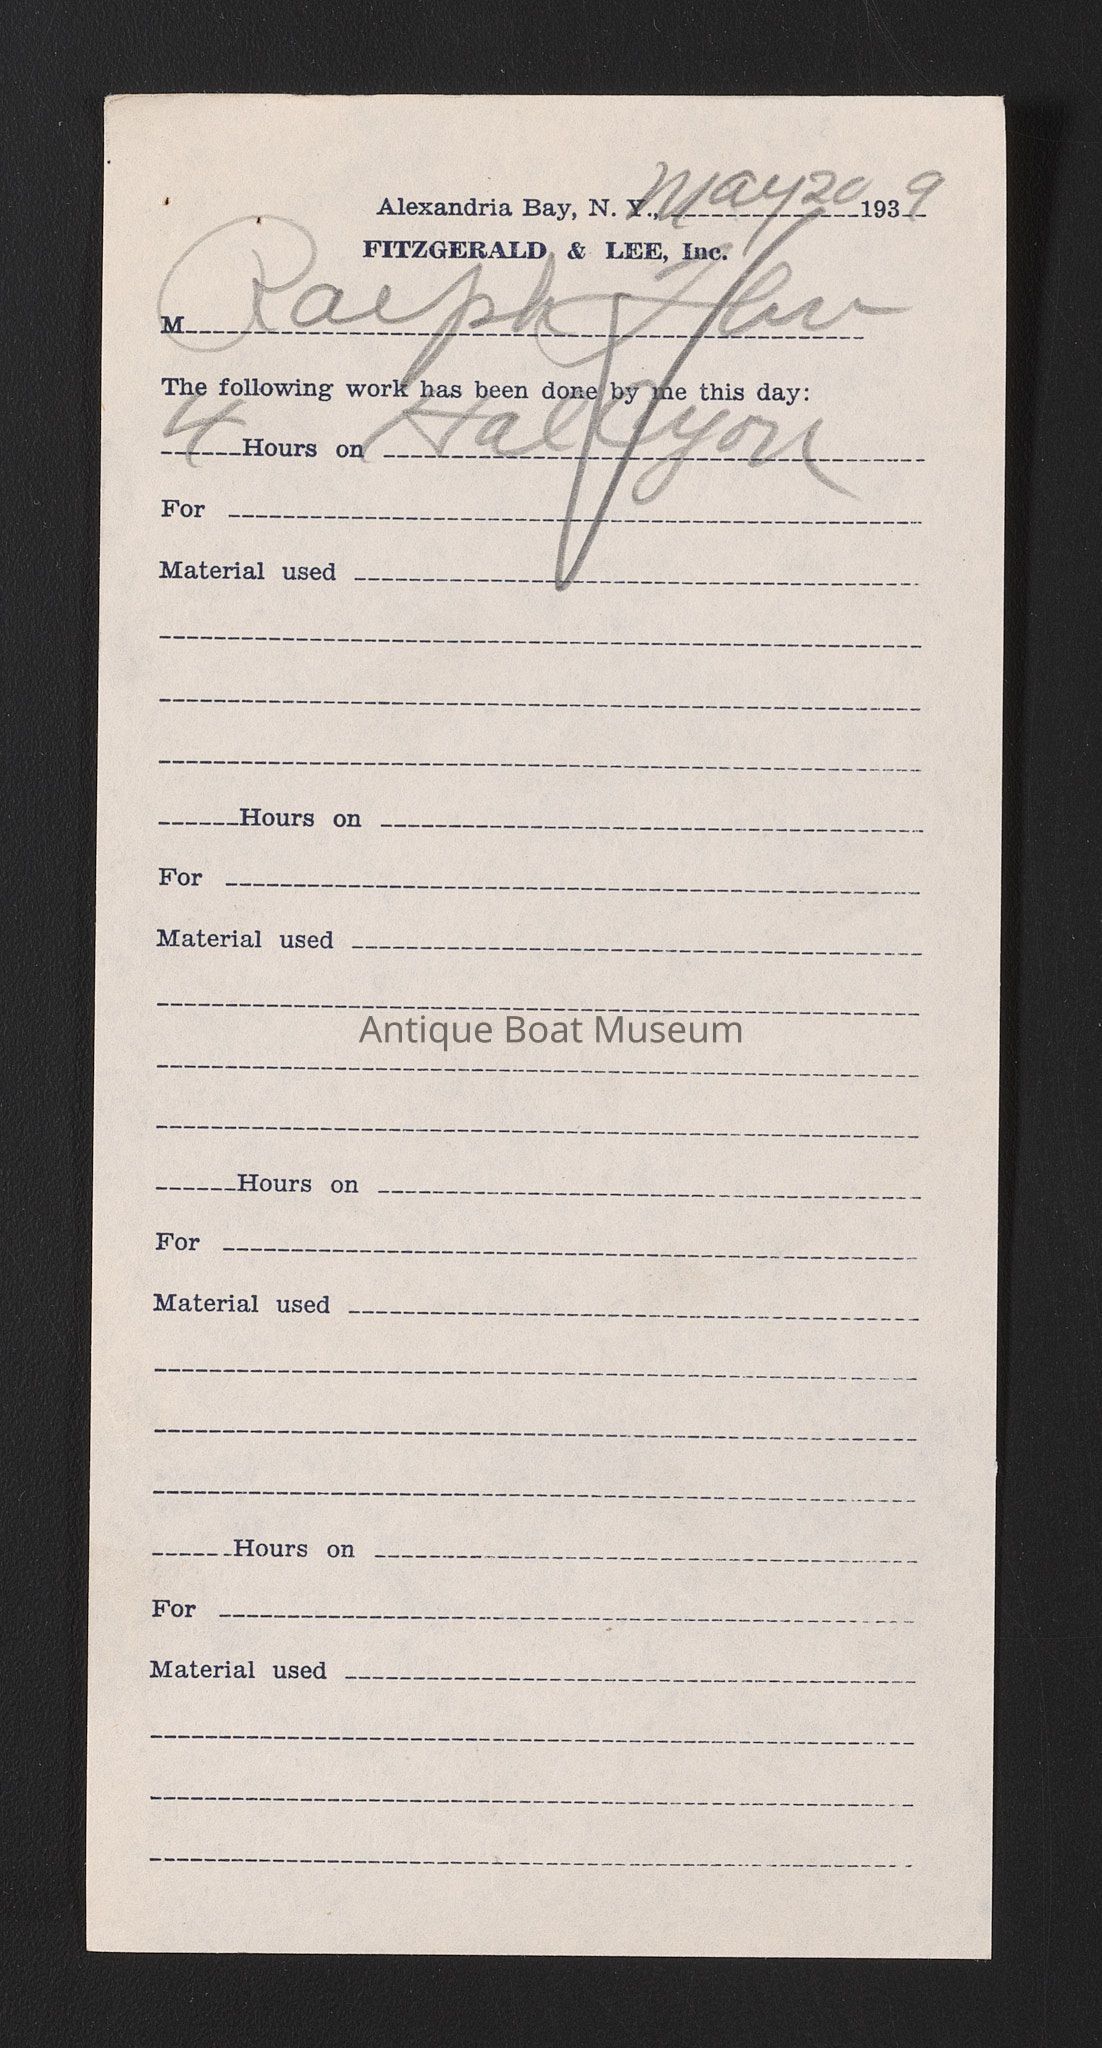 Alexandria Bay, N. Y., May 20 1939
FITZGERALD & LEE, Inc.
M Ralph
The following work has been done by me this day:
4 Hours on Halcyon
For
Material used
Hours on
For
Material used
Antique Boat Museum
Hours on
For
Material used
Hours on
For
Material used